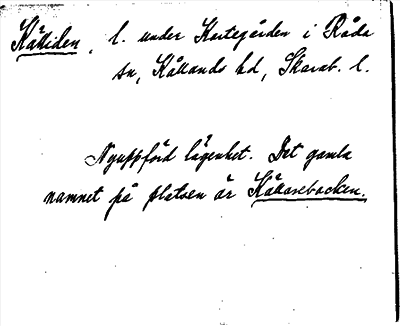 Källiden, l. under Kartegården i Råda
sn, Kållands hd, Skarab. l.
Nyuppförd lägenhet. Det gamla
namnet på platsen är Källarebacken.